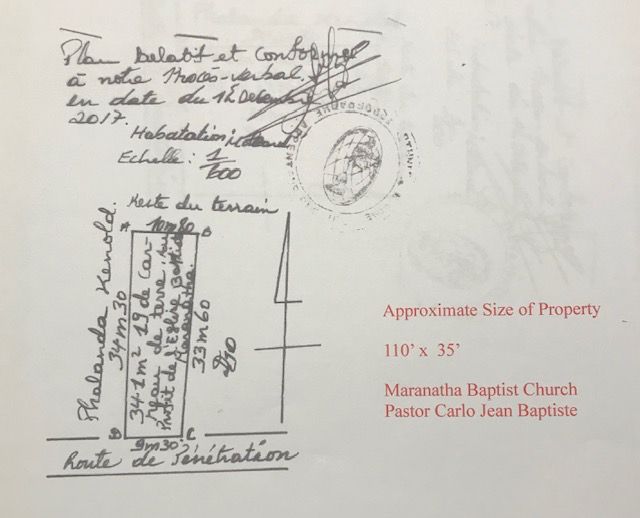 Plan Relatif et Conforme
à notre Procès-verbal.
en date du 12 Décembre
2017.
Habatation:
Echelle: 1/600
Reste du terrain
10m80
A
B
Phalanda Kenold.
34m30
341m² 19 de Car-
reau de terre, au
Profit de l'Eglise Baptiste
Maranatha.
33m60
D
C
9m30
Route de Pénétration
Approximate Size of Property
110’ x 35’
Maranatha Baptist Church
Pastor Carlo Jean Baptiste